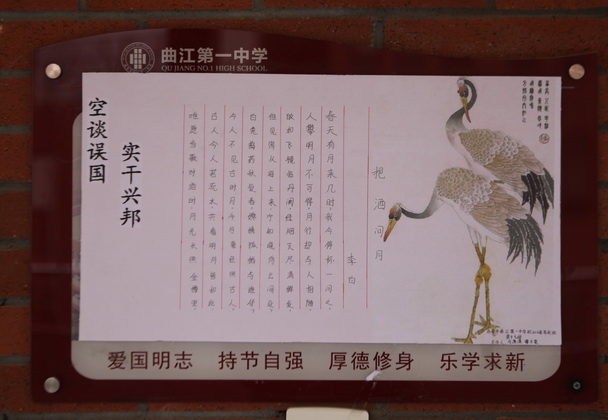 曲江第一中学
QU JIANG NO.1 HIGH SCHOOL
空谈误国
实干兴邦
把酒问月
李白
青天有月来几时,我今停杯一问之。
人攀明月不可得,月行却与人相随。
皎如飞镜临丹阙,绿烟灭尽清辉发。
但见宵从海上来,宁知晓向云间没。
白兔捣药秋复春,嫦娥孤栖与谁邻?
今人不见古时月,今月曾经照古人。
古人今人若流水,共看明月皆如此。
唯愿当歌对酒时,月光长照金樽里。
爱国明志 持节自强 厚德修身 乐学求新